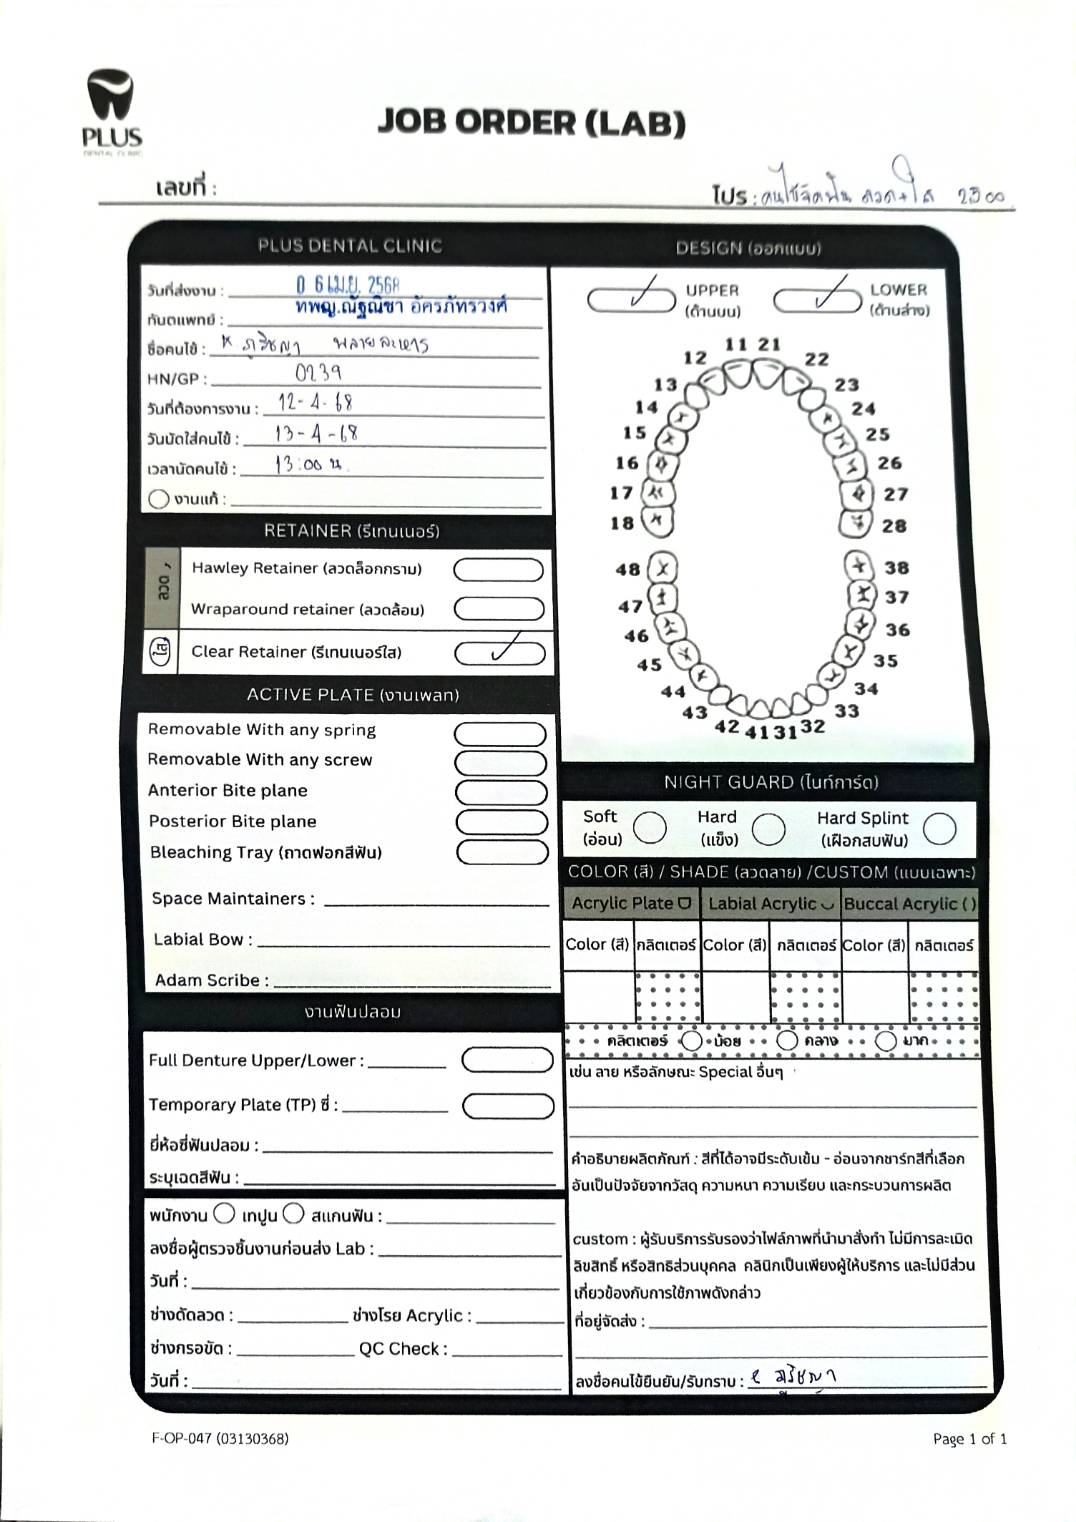 PLUS
DENTAL CLINIC
JOB ORDER (LAB)
เลขที่ :
โปร : คนไข้จัดฟัน ลวด+ใส 2500
PLUS DENTAL CLINIC
วันที่ส่งงาน : 0 6 เม.ย. 2568
ทันตแพทย์ : ทพญ.ณัฐณิชา อัครภัทรวงศ์
ชื่อคนไข้ : ภูริชญา พลายละหาร
HN/GP : 0239
วันที่ต้องการงาน : 12-4-68
วันนัดใส่คนไข้ : 13-4-68
เวลานัดคนไข้ : 13:00 น
งานแก้ :
RETAINER (รีเทนเนอร์)
ลวด ,
Hawley Retainer (ลวดล็อกกราม)
Wraparound retainer (ลวดล้อม)
ใส
Clear Retainer (รีเทนเนอร์ใส)
ACTIVE PLATE (งานเพลท)
Removable With any spring
Removable With any screw
Anterior Bite plane
Posterior Bite plane
Bleaching Tray (ถาดฟอกสีฟัน)
Space Maintainers :
Labial Bow :
Adam Scribe :
งานฟันปลอม
Full Denture Upper/Lower :
Temporary Plate (TP) ซี่ :
ยี่ห้อซี่ฟันปลอม :
ระบุเฉดสีฟัน :
พนักงาน เทปูน สแกนฟัน :
ลงชื่อผู้ตรวจชิ้นงานก่อนส่ง Lab :
วันที่ :
ช่างดัดลวด : ช่างโรย Acrylic :
ช่างกรอขัด : QC Check :
วันที่ :
DESIGN (ออกแบบ)
UPPER LOWER
(ด้านบน) (ด้านล่าง)
11 21
12 22
13 23
14 24
15 25
16 26
17 27
18 28
48 38
47 37
46 36
45 35
44 34
43 33
42 41 31 32
NIGHT GUARD (ไนท์การ์ด)
Soft Hard Hard Splint
(อ่อน) (แข็ง) (เฝือกสบฟัน)
COLOR (สี) / SHADE (ลวดลาย) /CUSTOM (แบบเฉพาะ)
Acrylic Plate Labial Acrylic Buccal Acrylic ( )
Color (สี) กลิตเตอร์ Color (สี) กลิตเตอร์ Color (สี) กลิตเตอร์
กลิตเตอร์ น้อย กลาง มาก
เช่น ลาย หรือลักษณะ Special อื่นๆ
คำอธิบายผลิตภัณฑ์ : สีที่ได้อาจมีระดับเข้ม - อ่อนจากชาร์ทสีที่เลือก
อันเป็นปัจจัยจากวัสดุ ความหนา ความเรียบ และกระบวนการผลิต
custom : ผู้รับบริการรับรองว่าไฟล์ภาพที่นำมาสั่งทำ ไม่มีการละเมิด
ลิขสิทธิ์ หรือสิทธิส่วนบุคคล คลินิกเป็นเพียงผู้ให้บริการ และไม่มีส่วน
เกี่ยวข้องกับการใช้ภาพดังกล่าว
ที่อยู่จัดส่ง :
ลงชื่อคนไข้ยืนยัน/รับทราบ : ภูริชญา
F-OP-047 (03130368)
Page 1 of 1